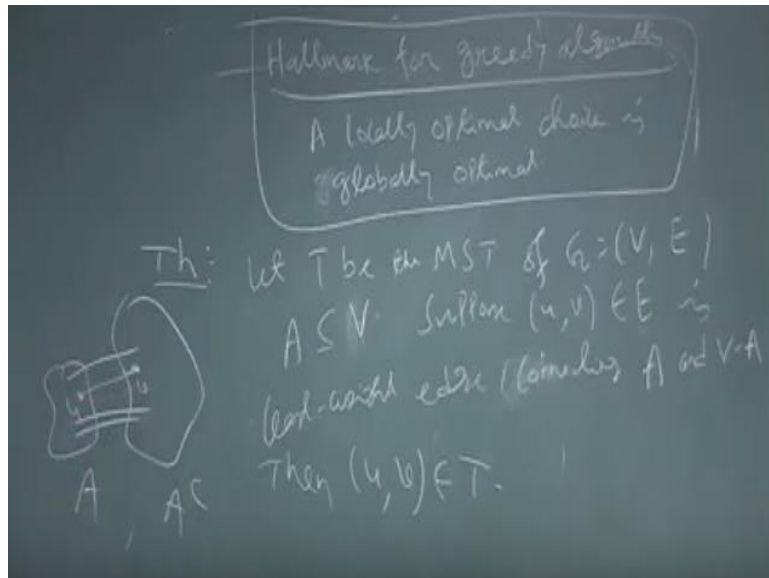 Hallmark for greedy algorithm
A locally optimal choice is
globally optimal
Th: Let T be the MST of G=(V, E)
A ⊆ V. Suppose (u,v) ∈ E is
least-weight edge connecting A and V-A
Then (u,v) ∈ T.
u v
A , Ac